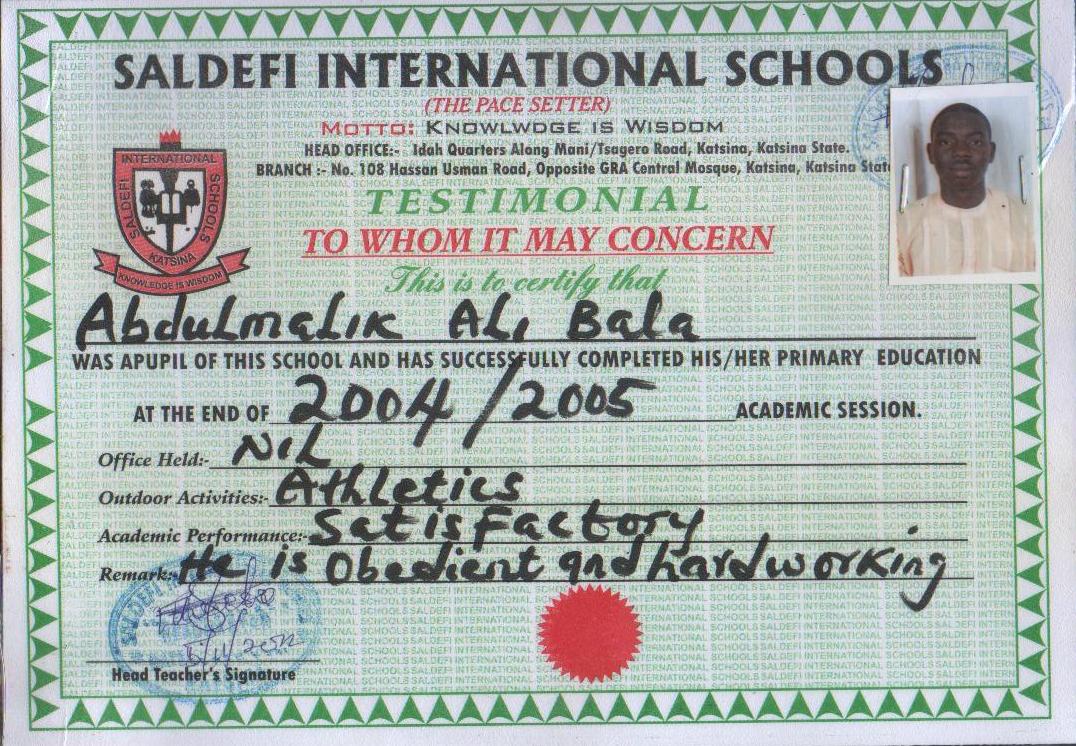 SALDEFI INTERNATIONAL SCHOOLS
(THE PACE SETTER)
MOTTO: KNOWLWDGE IS WISDOM
HEAD OFFICE:- Idah Quarters Along Mani/Tsagero Road, Katsina, Katsina State.
BRANCH :- No. 108 Hassan Usman Road, Opposite GRA Central Mosque, Katsina, Katsina Stat
INTERNATIONAL
SALDEFI
SCHOOLS
KATSINA
KNOWLEDGE IS WISDOM
TESTIMONIAL
TO WHOM IT MAY CONCERN
This is to certify that
Abdulmalik Ali Bala
WAS APUPIL OF THIS SCHOOL AND HAS SUCCESSFULLY COMPLETED HIS/HER PRIMARY EDUCATION
AT THE END OF 2004/2005 ACADEMIC SESSION.
Office Held:- NIL
Outdoor Activities:- Athletics
Academic Performance:- Satisfactory
Remark:- He is Obedient and hardworking
Head Teacher's Signature